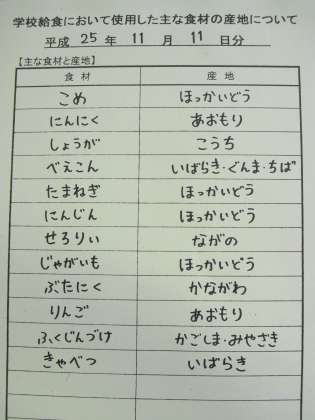 学校給食において使用した主な食材の産地について
平成 25 年 11 月 11 日分
【主な食材と産地】
食材 産地
こめ ほっかいどう
にんにく あおもり
しょうが こうち
べえこん いばらき・ぐんま・ちば
たまねぎ ほっかいどう
にんじん ほっかいどう
せろりぃ ながの
じゃがいも ほっかいどう
ぶたにく かながわ
りんご あおもり
ふくじんづけ かごしま・みやざき
きゃべつ いばらき